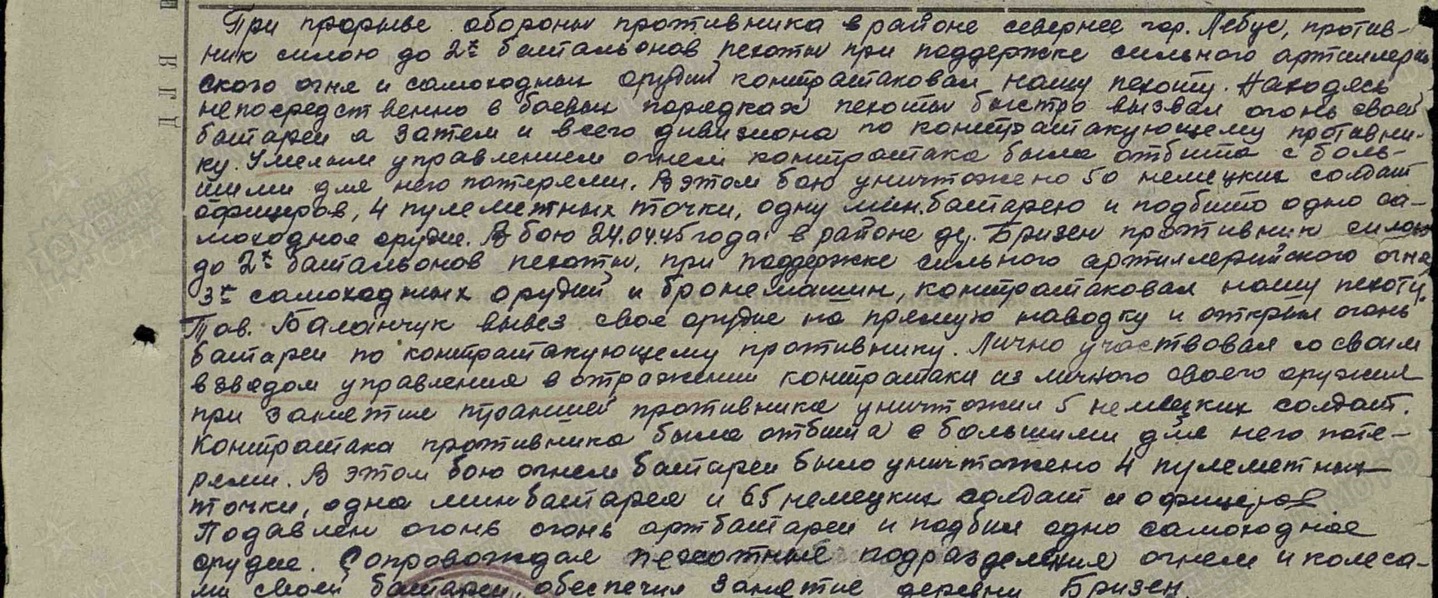 При прорыве обороны противника в районе севернее гор. Лебус, против-
ник силою до 2х батальонов пехоты при поддержке сильного артиллерий-
ского огня и самоходных орудий контратаковал нашу пехоту. Находясь
непосредственно в боевых порядках пехоты быстро вызвал огонь своей
батареи а затем и всего дивизиона по контратакующему противни-
ку. Умелым управлением огнем контратака была отбита с боль-
шими для него потерями. В этом бою уничтожено 50 немецких солдат
офицеров, 4 пулеметных точки, одну мин.батарею и подбито одно са-
моходное орудие. В бою 24.04.45 года в районе д. Бризен противник силою
до 2х батальонов пехоты, при поддержке сильного артиллерийского огня
3х самоходных орудий и бронемашин, контратаковал нашу пехоту.
Тов. Баланчук вывез свое орудие на прямую наводку и открыл огонь
батареи по контратакующему противнику. Лично участвовал со своим
взводом управления в отражении контратаки из личного своего оружия
при занятии траншей противника уничтожил 5 немецких солдат.
Контратака противника была отбита с большими для него поте-
рями. В этом бою огнем батареи было уничтожено 4 пулеметных
точки, одна минбатарея и 65 немецких солдат и офицеров
Подавлен огонь огонь артбатареи и подбил одно самоходное
орудие. Сопровождая пехотные подразделения огнем и колеса-
ми своей батареи, обеспечил занятие деревни Бризен.